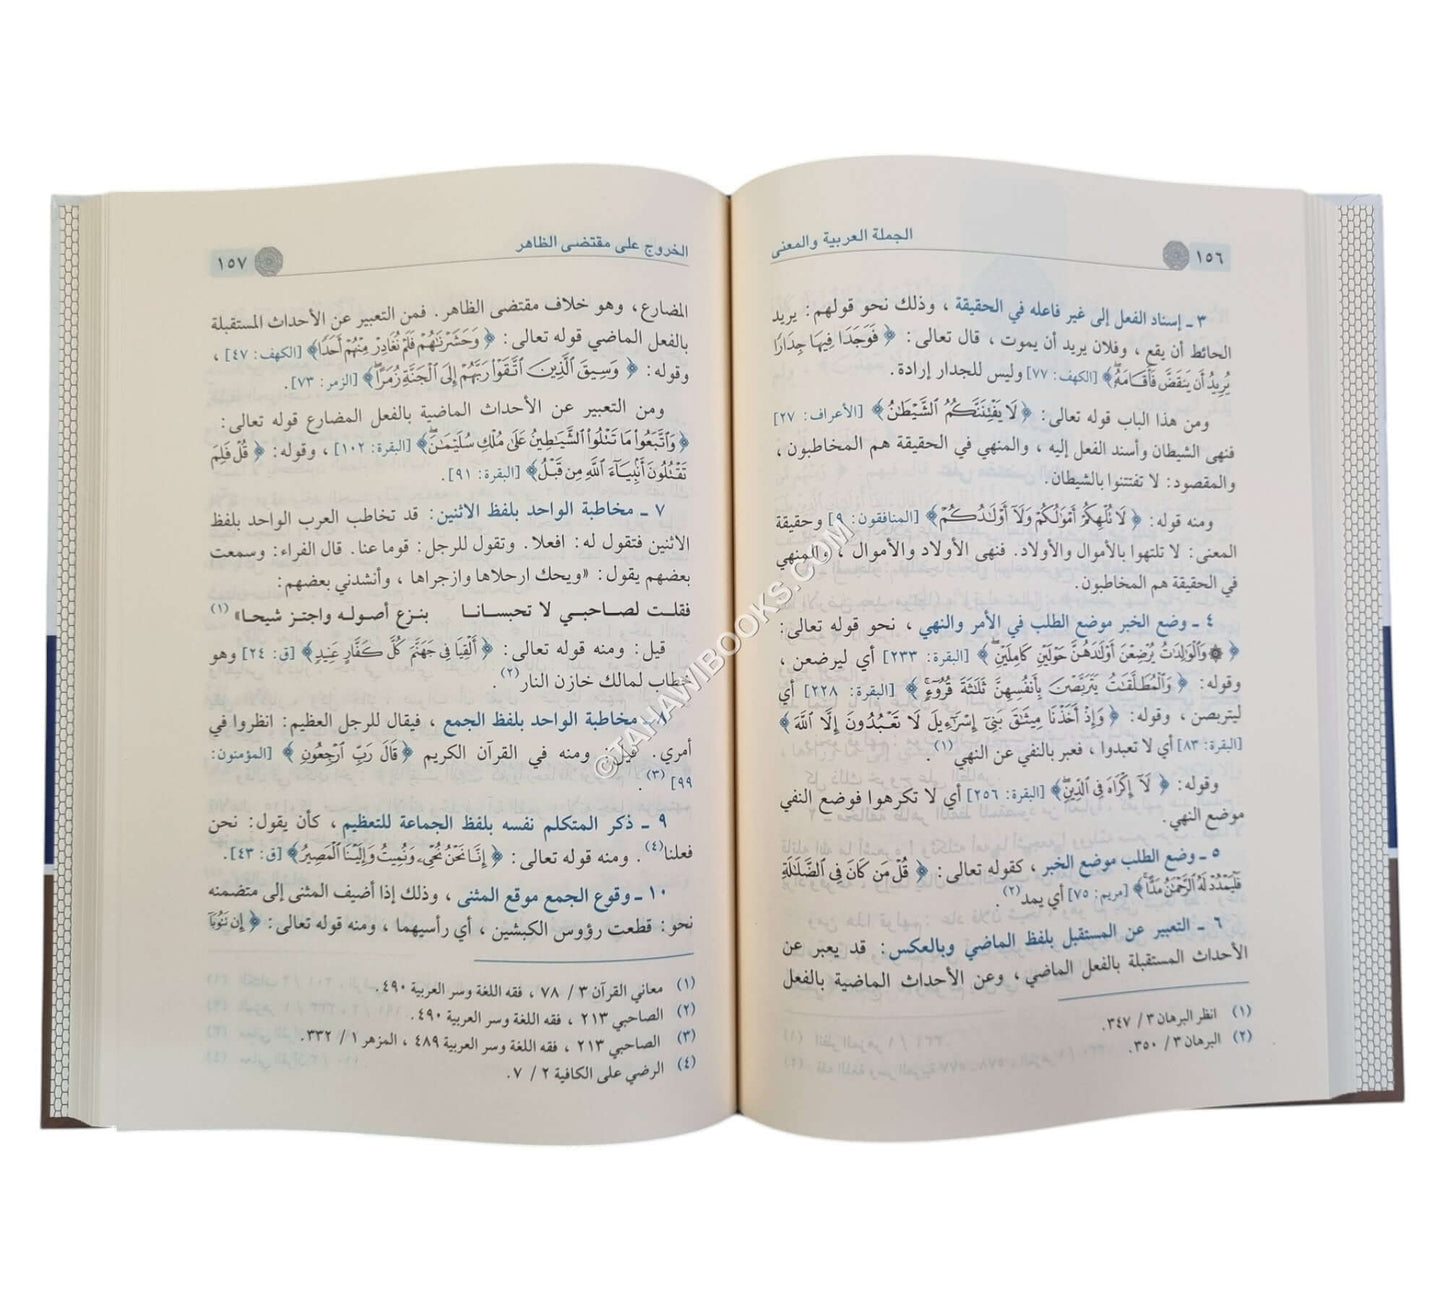 ١٥٦
الجملة العربية والمعنى
٣ ـ إسناد الفعل إلى غير فاعله في الحقيقة ، وذلك نحو قولهم : يريد
الحائط أن يقع ، وفلان يريد أن يموت ، قال تعالى : ﴿ فَوَجَدَا فِيهَا جِدَارًا
يُرِيدُ أَن يَنقَضَّ فَأَقَامَهُۥ ﴾ [الكهف: ٧٧] وليس للجدار إرادة.
ومن هذا الباب قوله تعالى : ﴿ لَا يَفْتِنَنَّكُمُ الشَّيْطَٰنُ ﴾ [الأعراف: ٢٧]
فنهى الشيطان وأسند الفعل إليه ، والمنهي في الحقيقة هم المخاطبون،
والمقصود: لا تفتتنوا بالشيطان.
ومنه قوله : ﴿ لَا تُلْهِكُمْ أَمْوَٰلُكُمْ وَلَآ أَوْلَٰدُكُمْ ﴾ [المنافقون: ٩] وحقيقة
المعنى: لا تلتهوا بالأموال والأولاد. فنهى الأولاد والأموال ، والمنهي
في الحقيقة هم المخاطبون.
٤ ـ وضع الخبر موضع الطلب في الأمر والنهي ، نحو قوله تعالى :
﴿ ۞ وَالْوَٰلِدَٰتُ يُرْضِعْنَ أَوْلَٰدَهُنَّ حَوْلَيْنِ كَامِلَيْنِ ﴾ [البقرة: ٢٣٣] أي ليرضعن ،
وقوله : ﴿ وَالْمُطَلَّقَٰتُ يَتَرَبَّصْنَ بِأَنفُسِهِنَّ ثَلَٰثَةَ قُرُوٓءٍ ﴾ [البقرة: ٢٢٨] أي
ليتربصن ، وقوله : ﴿ وَإِذْ أَخَذْنَا مِيثَٰقَ بَنِيٓ إِسْرَٰٓءِيلَ لَا تَعْبُدُونَ إِلَّا اللَّهَ ﴾
[البقرة: ٨٣] أي لا تعبدوا ، فعبر بالنفي عن النهي (١).
وقوله : ﴿ لَآ إِكْرَاهَ فِي الدِّينِ ﴾ [البقرة: ٢٥٦] أي لا تكرهوا فوضع النفي
موضع النهي.
٥ ـ وضع الطلب موضع الخبر ، كقوله تعالى : ﴿ قُلْ مَن كَانَ فِي الضَّلَٰلَةِ
فَلْيَمْدُدْ لَهُ الرَّحْمَٰنُ مَدًّا ﴾ [مريم: ٧٥] أي يمد (٢).
٦ ـ التعبير عن المستقبل بلفظ الماضي وبالعكس : قد يعبر عن
الأحداث المستقبلة بالفعل الماضي ، وعن الأحداث الماضية بالفعل
(١) انظر البرهان ٣ / ٣٤٧.
(٢) البرهان ٣ / ٣٥٠.
الخروج على مقتضى الظاهر
١٥٧
المضارع ، وهو خلاف مقتضى الظاهر. فمن التعبير عن الأحداث المستقبلة
بالفعل الماضي قوله تعالى : ﴿ وَحَشَرْنَٰهُمْ فَلَمْ نُغَادِرْ مِنْهُمْ أَحَدًا ﴾ [الكهف: ٤٧] ،
وقوله : ﴿ وَسِيقَ الَّذِينَ اتَّقَوْا رَبَّهُمْ إِلَى الْجَنَّةِ زُمَرًا ﴾ [الزمر: ٧٣].
ومن التعبير عن الأحداث الماضية بالفعل المضارع قوله تعالى :
﴿ وَاتَّبَعُوا مَا تَتْلُوا الشَّيَٰطِينُ عَلَىٰ مُلْكِ سُلَيْمَٰنَ ﴾ [البقرة: ١٠٢] ، وقوله : ﴿ قُلْ فَلِمَ
تَقْتُلُونَ أَنۢبِيَآءَ اللَّهِ مِن قَبْلُ ﴾ [البقرة: ٩١].
٧ ـ مخاطبة الواحد بلفظ الاثنين : قد تخاطب العرب الواحد بلفظ
الاثنين فتقول له : افعلا. وتقول للرجل : قوما عنا. قال الفراء : وسمعت
بعضهم يقول : «ويحك ارحلاها وازجراها ، وأنشدني بعضهم:
فقلت لصاحبي لا تحبسانا بنزع أصوله واجتز شيحا» (١)
قيل : ومنه قوله تعالى : ﴿ أَلْقِيَا فِي جَهَنَّمَ كُلَّ كَفَّارٍ عَنِيدٍ ﴾ [ق: ٢٤] وهو
خطاب لمالك خازن النار (٢).
٨ ـ مخاطبة الواحد بلفظ الجمع ، فيقال للرجل العظيم : انظروا في
أمري. قيل : ومنه في القرآن الكريم ﴿ قَالَ رَبِّ ارْجِعُونِ ﴾ [المؤمنون:
٩٩] (٣).
٩ ـ ذكر المتكلم نفسه بلفظ الجماعة للتعظيم ، كأن يقول : نحن
فعلنا (٤). ومنه قوله تعالى : ﴿ إِنَّا نَحْنُ نُحْيِۦ وَنُمِيتُ وَإِلَيْنَا الْمَصِيرُ ﴾ [ق: ٤٣].
١٠ ـ وقوع الجمع موقع المثنى ، وذلك إذا أضيف المثنى إلى متضمنه
نحو : قطعت رؤوس الكبشين ، أي رأسيهما ، ومنه قوله تعالى : ﴿ إِن تَتُوبَآ
(١) معاني القرآن ٣ / ٧٨ ، فقه اللغة وسر العربية ٤٩٠.
(٢) الصاحبي ٢١٣ ، فقه اللغة وسر العربية ٤٩٠.
(٣) الصاحبي ٢١٣ ، فقه اللغة وسر العربية ٤٨٩ ، المزهر ١ / ٣٣٢.
(٤) الرضي على الكافية ٢ / ٧.
©TAHAWIBOOKS.COM